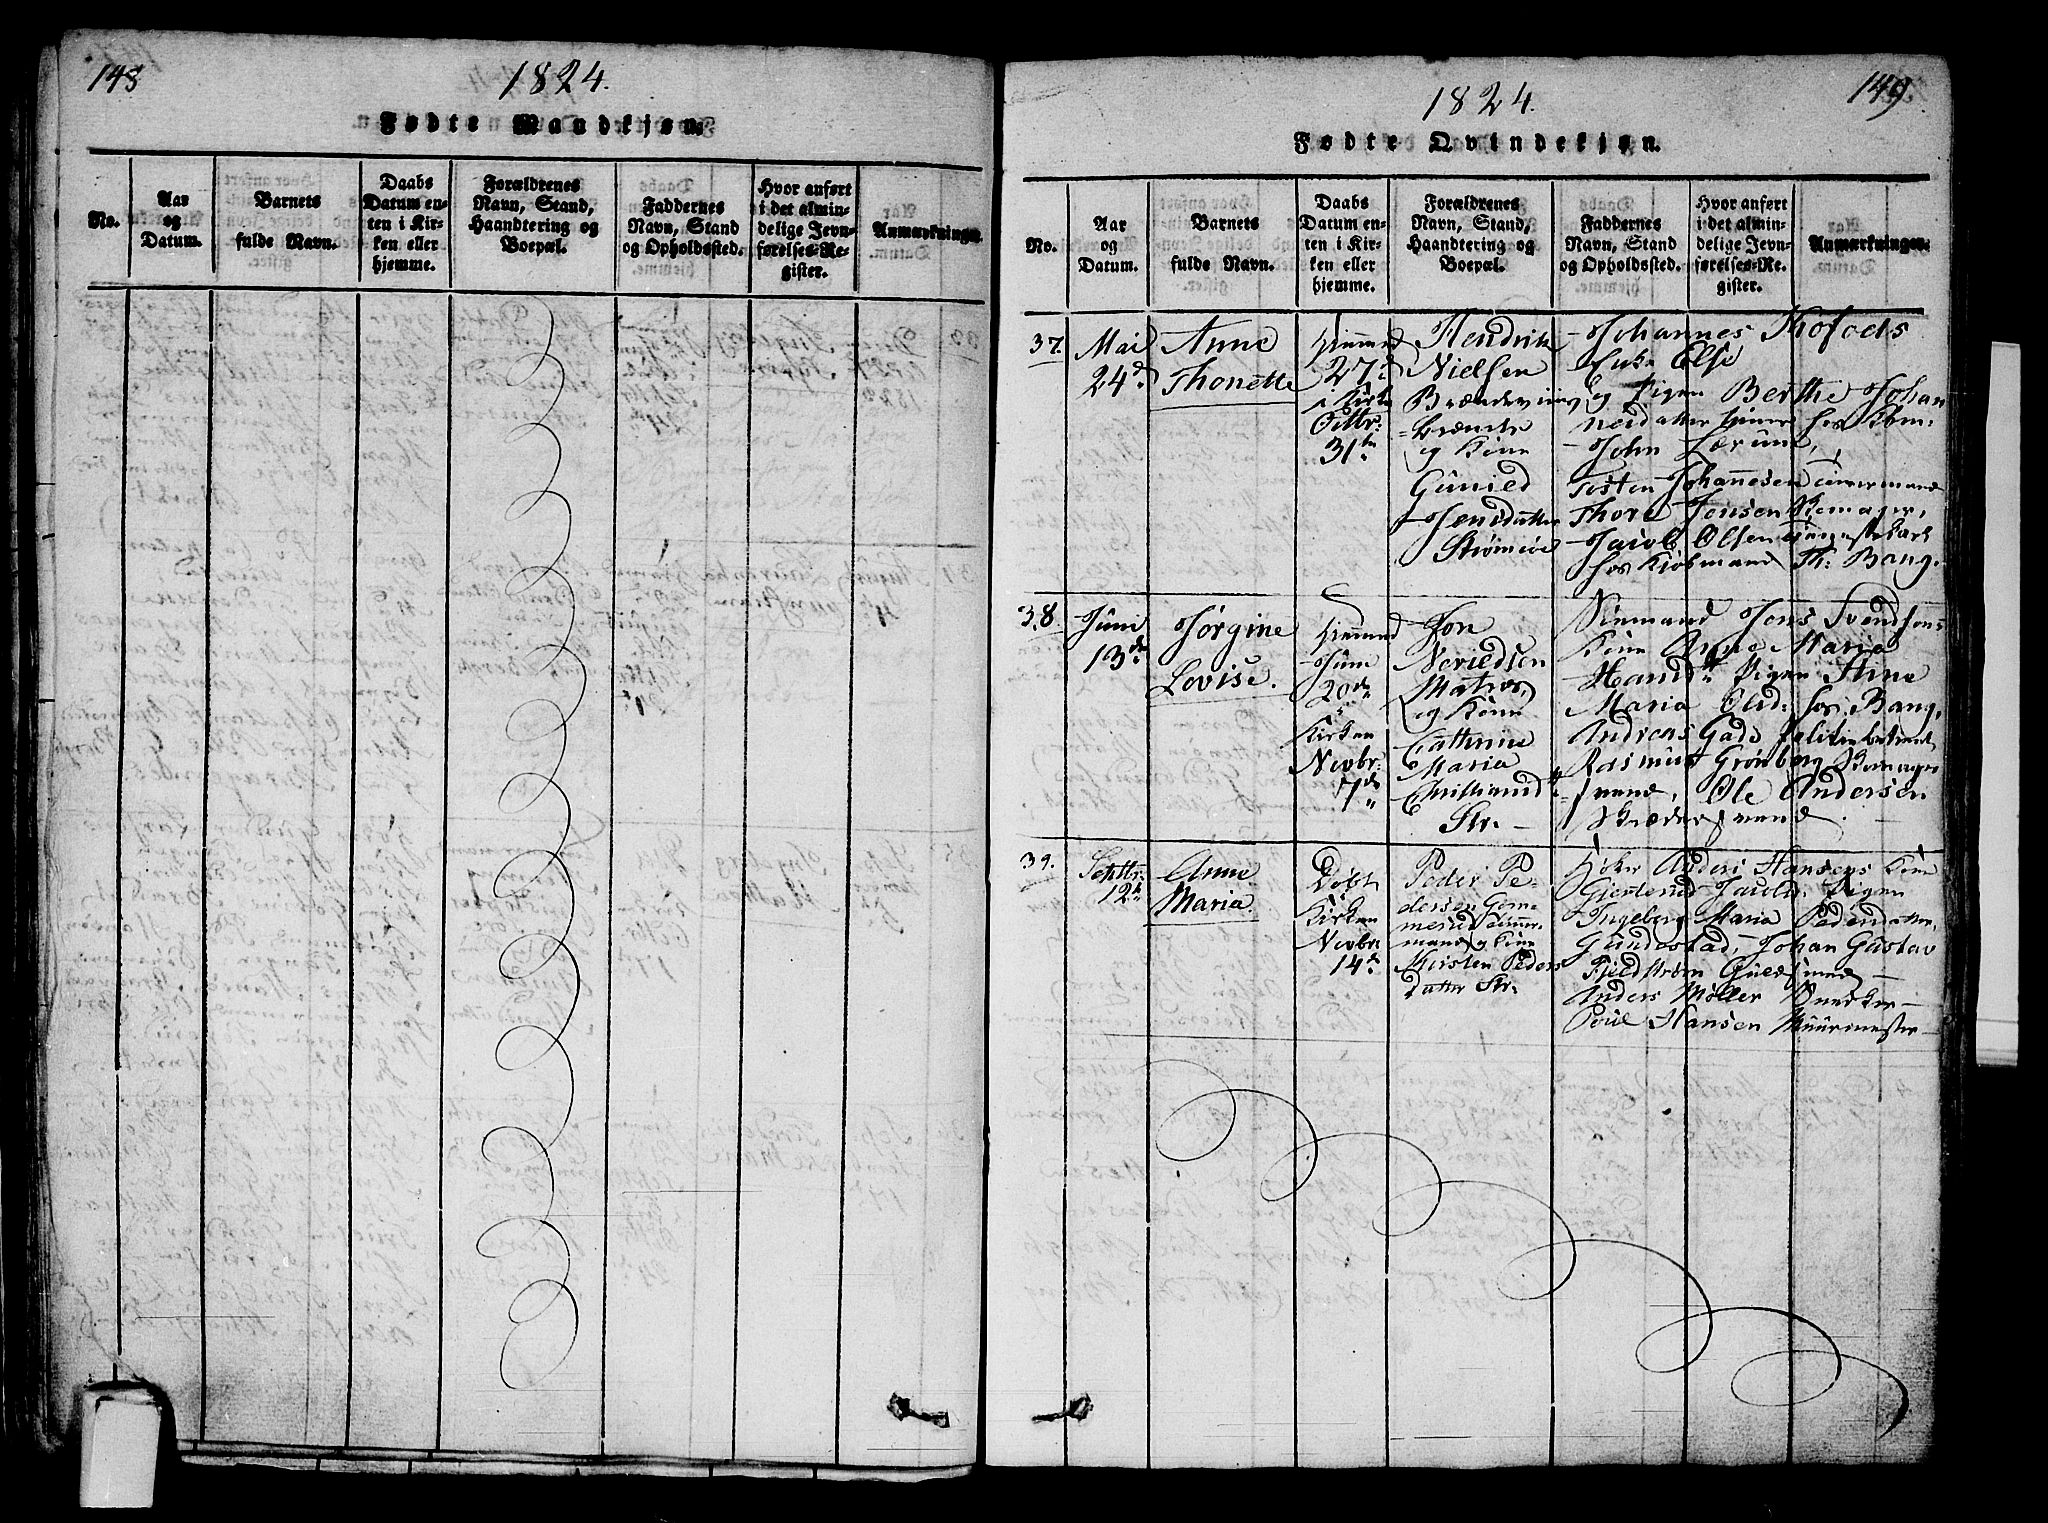 148
1824.
Fødte Mandkjøn.
No.
Aar
og
Datum.
Barnets
fulde Navn.
Daabs
Datum en-
ten i Kir-
ken eller
hjemme.
Forældrenes
Navn, Stand,
Haandtering og
Boepæl.
Faddernes
Navn, Stand
og Opholdssted.
Hvor anført
i det almin-
delige Jevn-
førelses-Re-
gister.
Anmærkninger.
149
1824.
Fødte Qvindekjøn.
No.
Aar
og
Datum.
Barnets
fulde Navn.
Daabs
Datum en-
ten i Kir-
ken eller
hjemme.
Forældrenes
Navn, Stand,
Haandtering og
Boepæl.
Faddernes
Navn, Stand
og Opholdssted.
Hvor anført
i det almin-
delige Jevn-
førelses-Re-
gister.
Anmærkninger.
37.
Mai
24d
Anne
Thonette
hjemmed
27d
i Kirke
Octbr:
31te
Hendrik
Nielsen
Brændeviins
brænder
og Kone
Gunild
Jensdatter
Strømsøe
Johannes Kofods
Enke Else
og Pigen Berthe Johan
nesdatter tjener hos Kbm:
John Lærum,
Tosten Johannesen Timmermand
Thore Jensen Skomager,
Jacob Olsen Tjenestekarl
hos Kjøbmand Th: Bang.
38
Juni
13de
Jørgine
Lovise.
hjemmed
Juni
20de
Kirken
Novbr:
7de
Jon
Nerildsen
Matros,
og Kone
Cathrine
Maria
Christiansd:
Str.
Siemand Jens Svendsens
Kone Anne Maria
Hansd: Pigen Stine
Maria Olsd: hos Bang,
Andreas Gade Politiebetient
Rasmus Grønberg Skomager
svend, Ole Andersen
Skrædersvend.
39.
Septbr.
12te
Anne
Maria.
Døbt
Kirken
Novbr
14de
Peder Pe-
dersen
Timmer-
mand og Kone
Kirsten Peders
datter Str.
Høker Anders Hansens Kone
Gjertrud Jacobsd: Pigen
Ingeborg Maria Pedersdatter,
Gundestad, Johan Gustav
Fieldstrøm Guldsmed
Anders Møller Snedker
Poul Hansen Muurmester